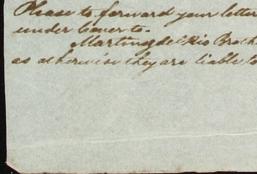 Please to forward your letter
under Cover to.
Martinez del Rio Broth
as otherwise they are liable to